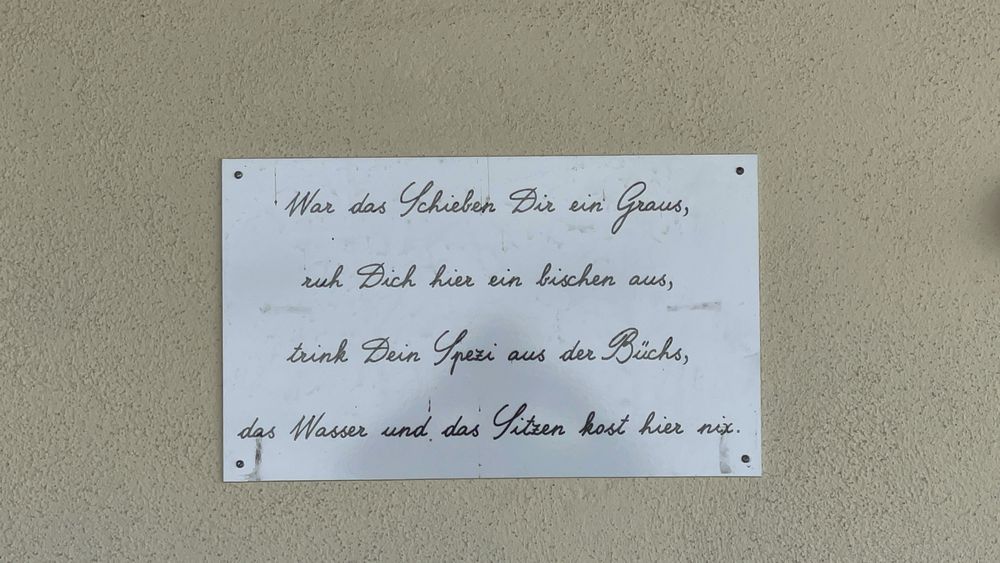 War das Schieben Dir ein Graus,
ruh Dich hier ein bischen aus,
trink Dein Spezi aus der Büchs,
das Wasser und das Sitzen kost hier nix.